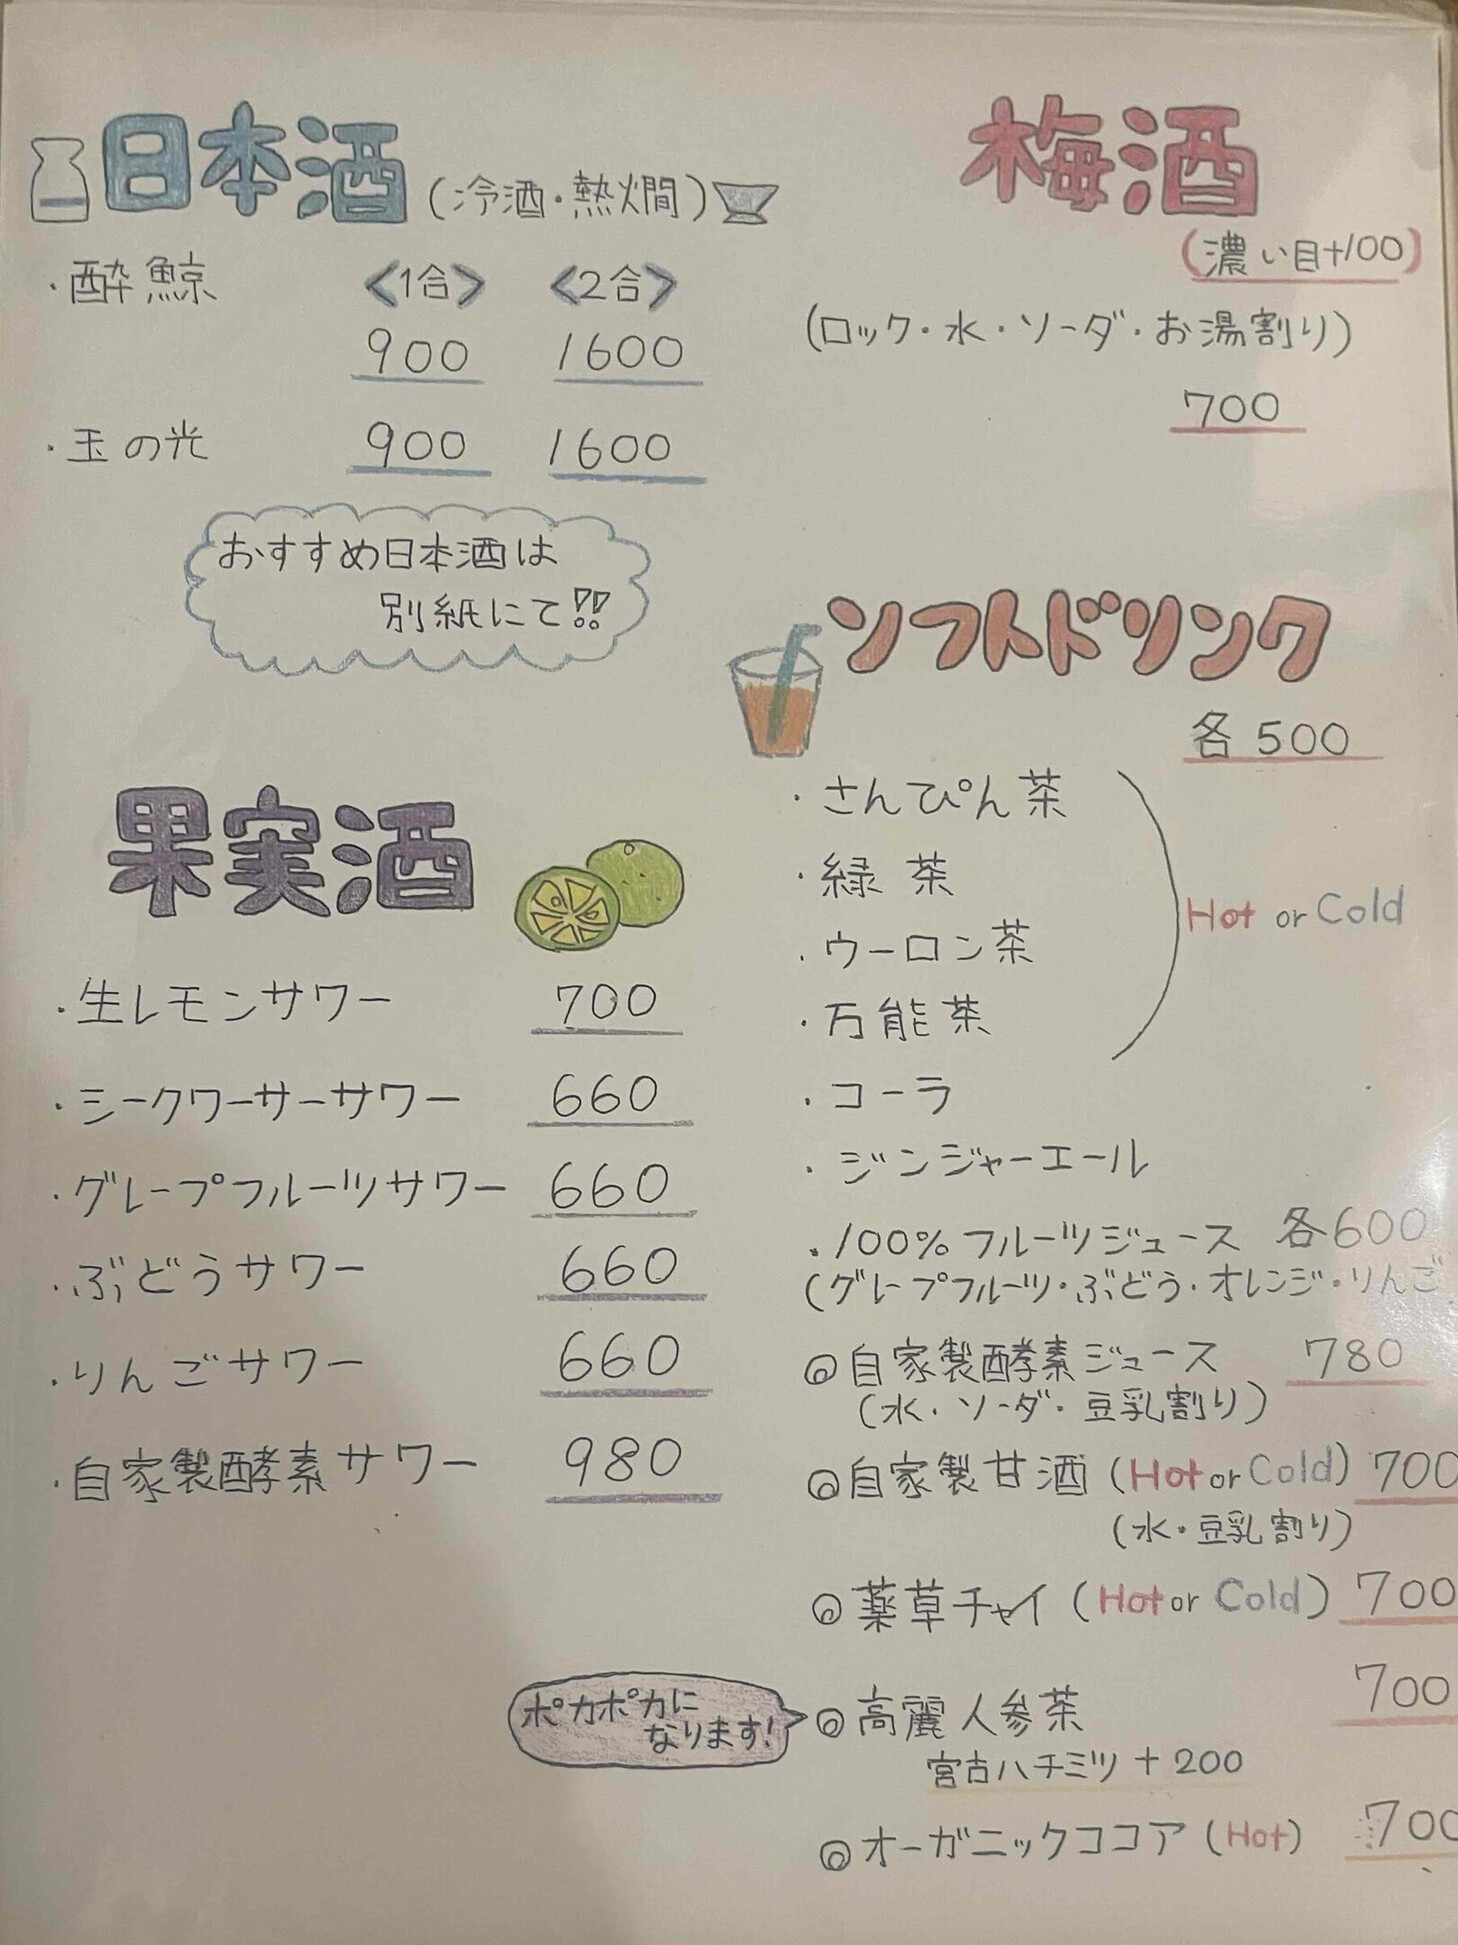 日本酒(冷酒・熱燗)
・酔鯨 <1合> <2合>
900 1600
・玉の光 900 1600
おすすめ日本酒は
別紙にて!!
果実酒
・生レモンサワー 700
・シークワーサーサワー 660
・グレープフルーツサワー 660
・ぶどうサワー 660
・りんごサワー 660
・自家製酵素サワー 980
梅酒
(濃い目+100)
(ロック・水・ソーダ・お湯割り)
700
ソフトドリンク
各500
・さんぴん茶
・緑茶
・ウーロン茶
・万能茶
Hot or Cold
・コーラ
・ジンジャーエール
・100%フルーツジュース 各600
(グレープフルーツ・ぶどう・オレンジ・りんご
◎自家製酵素ジュース 780
(水・ソーダ・豆乳割り)
◎自家製甘酒(Hot or Cold) 700
(水・豆乳割り)
◎薬草チャイ(Hot or Cold) 700
ポカポカに
なります!
◎高麗人参茶 700
宮古ハチミツ+200
◎オーガニックココア(Hot) 700